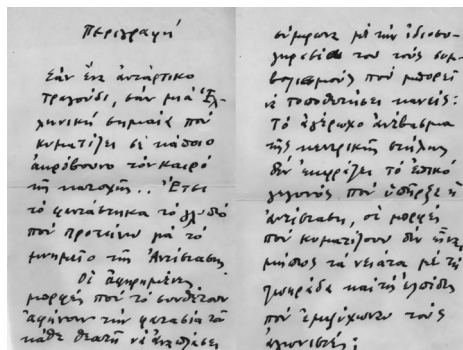 Περιγραφή
Σάν ἕνα ἀντάρτικο
τραγούδι, σάν μιά Ἑλ-
ληνική σημαία πού
κυματίζει σέ κάποιο
ἀκρόβουνο τόν καιρό
τῆς κατοχῆς.. Ἔτσι
τό φαντάστηκα τό γλυπτό
πού προτείνω γιά τό
μνημεῖο τῆς Ἀντίστασης
Οἱ ἀφηρημένες
μορφές πού τό συνθέτουν
ἀφήνουν τήν φαντασία τοῦ
κάθε θεατῆ νά ἀναπλάσει
σύμφωνα μέ τήν ἰδιοσυ-
γκρασία του τούς συμ-
βολισμούς πού μπορεῖ
νά τοποθετήσει κανείς:
Τό ἀγέρωχο ἀνέβασμα
τῆς κεντρικῆς στήλης
δέν ἐκφράζει τό ἐπικό
γεγονός πού ὑπῆρξε ἡ
Ἀντίσταση, οἱ μορφές
πού κυματίζουν δέν εἶναι
μήπως τά νειάτα μέ τή
ζωηράδα καί τίς ἐλπίδες
πού ἐμψύχωναν τούς
ἀγωνιστές;